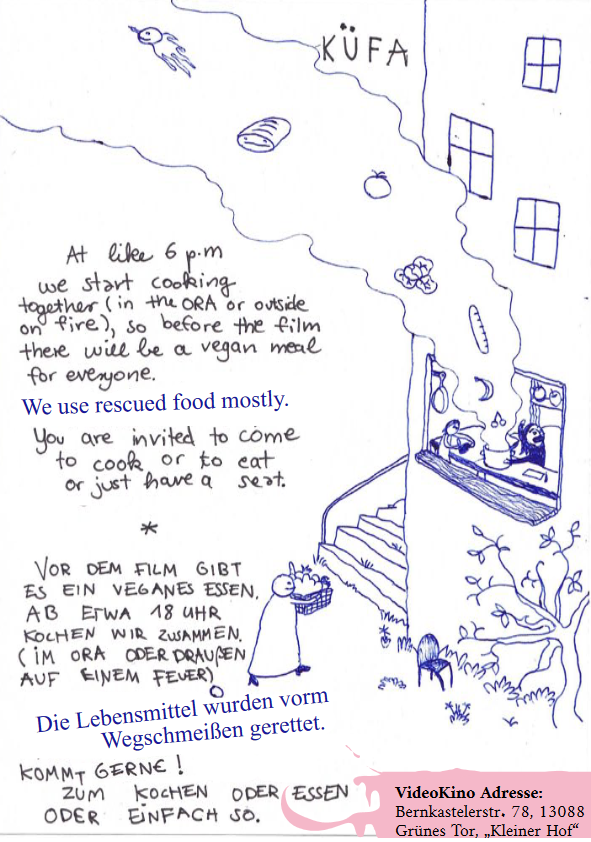 KÜFA
At like 6 p.m
we start cooking
together (in the ORA or outside
on fire), so before the film
there will be a vegan meal
for everyone.
We use rescued food mostly.
You are invited to come
to cook or to eat
or just have a seat.
*
VOR DEM FILM GIBT
ES EIN VEGANES ESSEN.
AB ETWA 18 UHR
KOCHEN WIR ZUSAMMEN.
(IM ORA ODER DRAUßEN
AUF EINEM FEUER)
Die Lebensmittel wurden vorm
Wegschmeißen gerettet.
KOMMT GERNE!
ZUM KOCHEN ODER ESSEN
ODER EINFACH SO.
VideoKino Adresse:
Bernkastelerstr. 78, 13088
Grünes Tor, „Kleiner Hof“